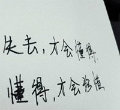 失去,才会懂得,
懂得,才会珍惜